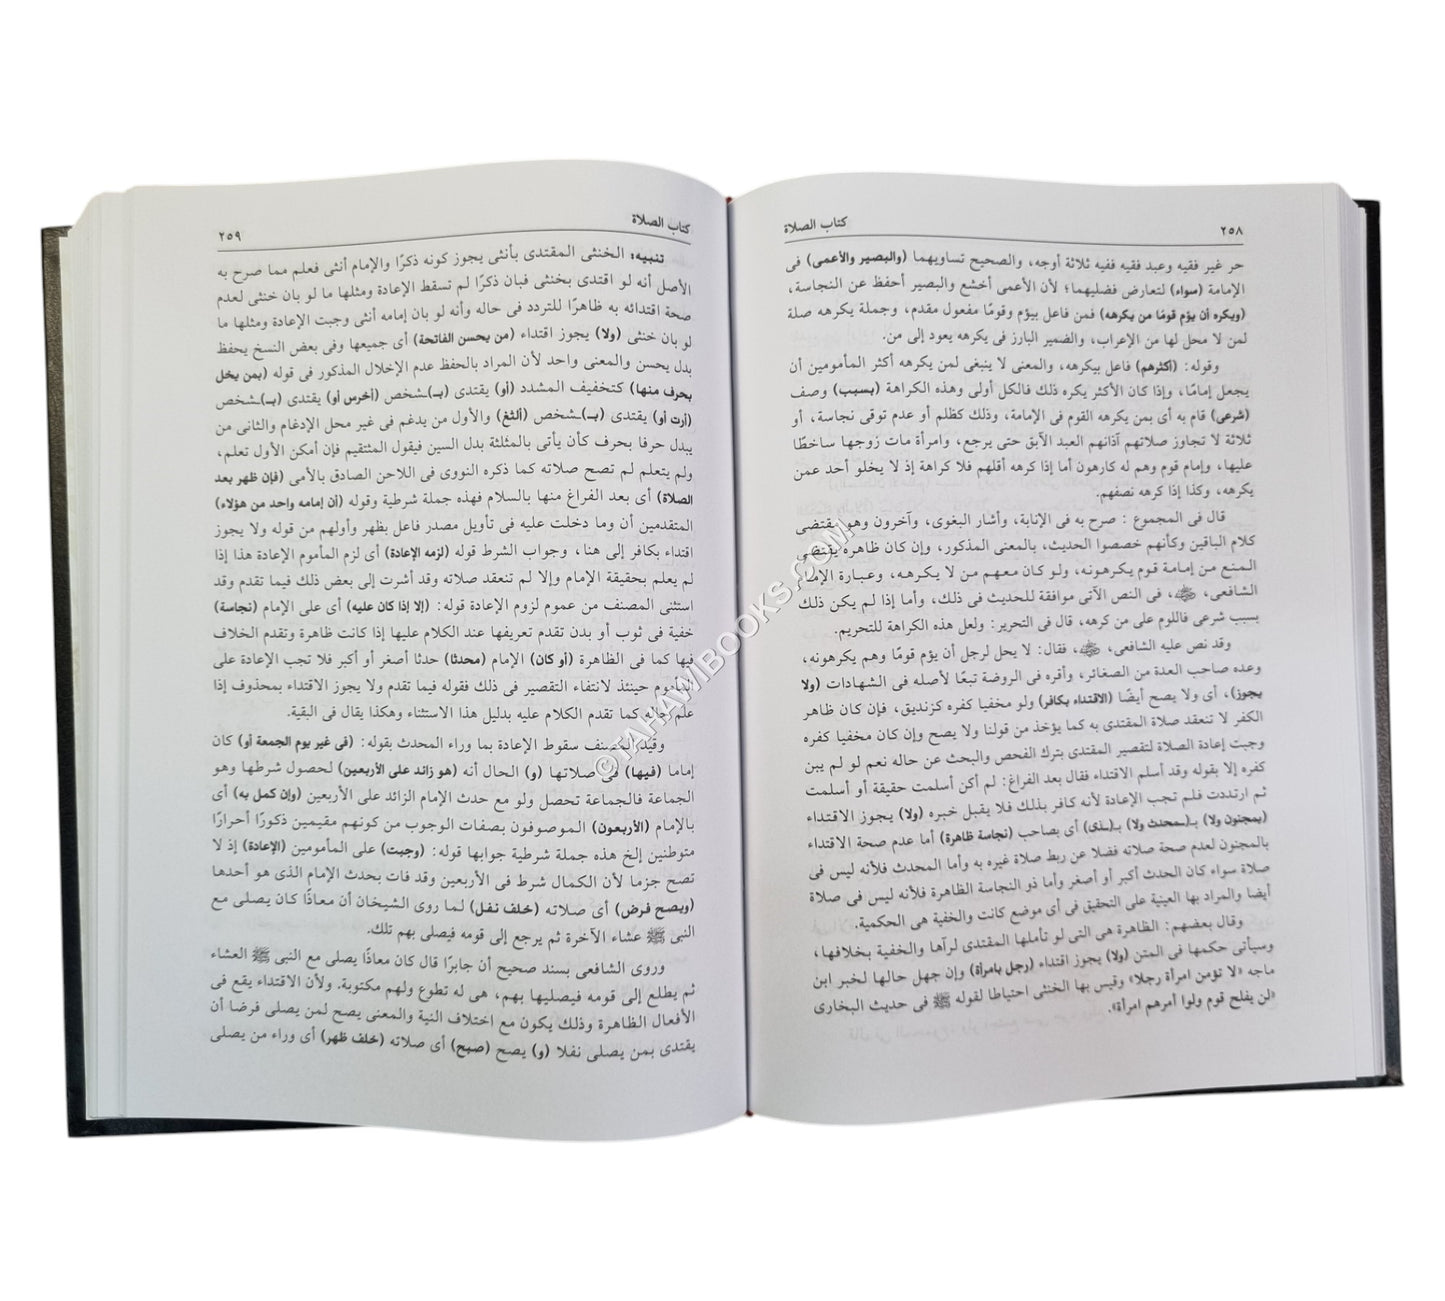 ٢٥٨
كتاب الصلاة
حر غير فقيه وعبد فقيه ففيه ثلاثة أوجه، والصحيح تساويهما (والبصير والأعمى) فى
الإمامة (سواء) لتعارض فضليهما؛ لأن الأعمى أخشع والبصير أحفظ عن النجاسة،
(ويكره أن يؤم قومًا من يكرهه) فمن فاعل بيؤم وقومًا مفعول مقدم، وجملة يكرهه صلة
لمن لا محل لها من الإعراب، والضمير البارز فى يكرهه يعود إلى من.
وقوله: (أكثرهم) فاعل بيكرهه، والمعنى لا ينبغى لمن يكرهه أكثر المأمومين أن
يجعل إمامًا، وإذا كان الأكثر يكره ذلك فالكل أولى وهذه الكراهة (بسبب) وصف
(شرعى) قام به أى بمن يكرهه القوم فى الإمامة، وذلك كظلم أو عدم توقى نجاسة، أو
ثلاثة لا تجاوز صلاتهم آذانهم العبد الآبق حتى يرجع، وامرأة مات زوجها ساخطًا
عليها، وإمام قوم وهم له كارهون أما إذا كرهه أقلهم فلا كراهة إذ لا يخلو أحد عمن
يكرهه، وكذا إذا كرهه نصفهم.
قال فى المجموع : صرح به فى الإنابة، وأشار البغوى، وآخرون وهو يقتضى
كلام الباقين وكأنهم خصصوا الحديث، بالمعنى المذكور، وإن كان ظاهره يقتضى
المنع من إمامة قوم يكرهونه، ولو كان معهم من لا يكرهه، وعبارة الإمام
الشافعى، ، فى النص الآتى موافقة للحديث فى ذلك، وأما إذا لم يكن ذلك
بسبب شرعى فاللوم على من كرهه، قال فى التحرير: ولعل هذه الكراهة للتحريم.
وقد نص عليه الشافعى، ، فقال: لا يحل لرجل أن يؤم قومًا وهم يكرهونه،
وعده صاحب العدة من الصغائر، وأقره فى الروضة تبعًا لأصله فى الشهادات (ولا
يجوز)، أى ولا يصح أيضًا (الاقتداء بكافر) ولو مخفيا كفره كزنديق، فإن كان ظاهر
الكفر لا تنعقد صلاة المقتدى به كما يؤخذ من قولنا ولا يصح وإن كان مخفيا كفره
وجبت إعادة الصلاة لتقصير المقتدى بترك الفحص والبحث عن حاله نعم لو لم يبن
كفره إلا بقوله وقد أسلم الاقتداء فقال بعد الفراغ: لم أكن أسلمت حقيقة أو أسلمت
ثم ارتددت فلم تجب الإعادة لأنه كافر بذلك فلا يقبل خبره (ولا) يجوز الاقتداء
(بمجنون ولا) بـ(محدث ولا) بـ(ذى) أى بصاحب (نجاسة ظاهرة) أما عدم صحة الاقتداء
بالمجنون لعدم صحة صلاته فضلا عن ربط صلاة غيره به وأما المحدث فلأنه ليس فى
صلاة سواء كان الحدث أكبر أو أصغر وأما ذو النجاسة الظاهرة فلأنه ليس فى صلاة
أيضا والمراد بها العينية على التحقيق فى أى موضع كانت والخفية هى الحكمية.
وقال بعضهم: الظاهرة هى التى لو تأملها المقتدى لرآها والخفية بخلافها،
وسيأتى حكمها فى المتن (ولا) يجوز اقتداء (رجل بامرأة) وإن جهل حالها لخبر ابن
ماجه «لا تؤمن امرأة رجلا» وقيس بها الخنثى احتياطا لقوله ﷺ فى حديث البخارى
«لن يفلح قوم ولوا أمرهم امرأة».
كتاب الصلاة
٢٥٩
تنبيه: الخنثى المقتدى بأنثى يجوز كونه ذكرًا والإمام أنثى فعلم مما صرح به
الأصل أنه لو اقتدى بخنثى فبان ذكرًا لم تسقط الإعادة ومثلها ما لو بان خنثى لعدم
صحة اقتدائه به ظاهرًا للتردد فى حاله وأنه لو بان إمامه أنثى وجبت الإعادة ومثلها ما
لو بان خنثى (ولا) يجوز اقتداء (من يحسن الفاتحة) أى جميعها وفى بعض النسخ يحفظ
بدل يحسن والمعنى واحد لأن المراد بالحفظ عدم الإخلال المذكور فى قوله (بمن يخل
بحرف منها) كتخفيف المشدد (أو) يقتدى (بـ)ـشخص (أخرس أو) يقتدى (بـ)ـشخص
(أرت أو) يقتدى (بـ)ـشخص (ألثغ) والأول من يدغم فى غير محل الإدغام والثانى من
يبدل حرفا بحرف كأن يأتى بالمثلثة بدل السين فيقول المثتقيم فإن أمكن الأول تعلم،
ولم يتعلم لم تصح صلاته كما ذكره النووى فى اللاحن الصادق بالأمى (فإن ظهر بعد
الصلاة) أى بعد الفراغ منها بالسلام فهذه جملة شرطية وقوله (أن إمامه واحد من هؤلاء)
المتقدمين أن وما دخلت عليه فى تأويل مصدر فاعل بظهر وأولهم من قوله ولا يجوز
اقتداء بكافر إلى هنا، وجواب الشرط قوله (لزمه الإعادة) أى لزم المأموم الإعادة هذا إذا
لم يعلم بحقيقة الإمام وإلا لم تنعقد صلاته وقد أشرت إلى بعض ذلك فيما تقدم وقد
استثنى المصنف من عموم لزوم الإعادة قوله: (إلا إذا كان عليه) أى على الإمام (نجاسة)
خفية فى ثوب أو بدن تقدم تعريفها عند الكلام عليها إذا كانت ظاهرة وتقدم الخلاف
فيها كما فى الظاهرة (أو كان) الإمام (محدثا) حدثا أصغر أو أكبر فلا تجب الإعادة على
المأموم حينئذ لانتفاء التقصير فى ذلك فقوله فيما تقدم ولا يجوز الاقتداء بمحذوف إذا
علم حاله كما تقدم الكلام عليه بدليل هذا الاستثناء وهكذا يقال فى البقية.
وقيد المصنف سقوط الإعادة بما وراء المحدث بقوله: (فى غير يوم الجمعة أو) كان
إماما (فيها) فى صلاتها (و) الحال أنه (هو زائد على الأربعين) لحصول شرطها وهو
الجماعة فالجماعة تحصل ولو مع حدث الإمام الزائد على الأربعين (وإن كمل به) أى
بالإمام (الأربعون) الموصوفون بصفات الوجوب من كونهم مقيمين ذكورًا أحرارًا
متوطنين إلخ هذه جملة شرطية جوابها قوله: (وجبت) على المأمومين (الإعادة) إذ لا
تصح جزما لأن الكمال شرط فى الأربعين وقد فات بحدث الإمام الذى هو أحدها
(ويصح فرض) أى صلاته (خلف نفل) لما روى الشيخان أن معاذًا كان يصلى مع
النبى ﷺ عشاء الآخرة ثم يرجع إلى قومه فيصلى بهم تلك.
وروى الشافعى بسند صحيح أن جابرًا قال كان معاذًا يصلى مع النبى ﷺ العشاء
ثم يطلع إلى قومه فيصليها بهم، هى له تطوع ولهم مكتوبة. ولأن الاقتداء يقع فى
الأفعال الظاهرة وذلك يكون مع اختلاف النية والمعنى يصح لمن يصلى فرضا أن
يقتدى بمن يصلى نفلا (و) يصح (صبح) أى صلاته (خلف ظهر) أى وراء من يصلى
©TAHAWIBOOKS.COM